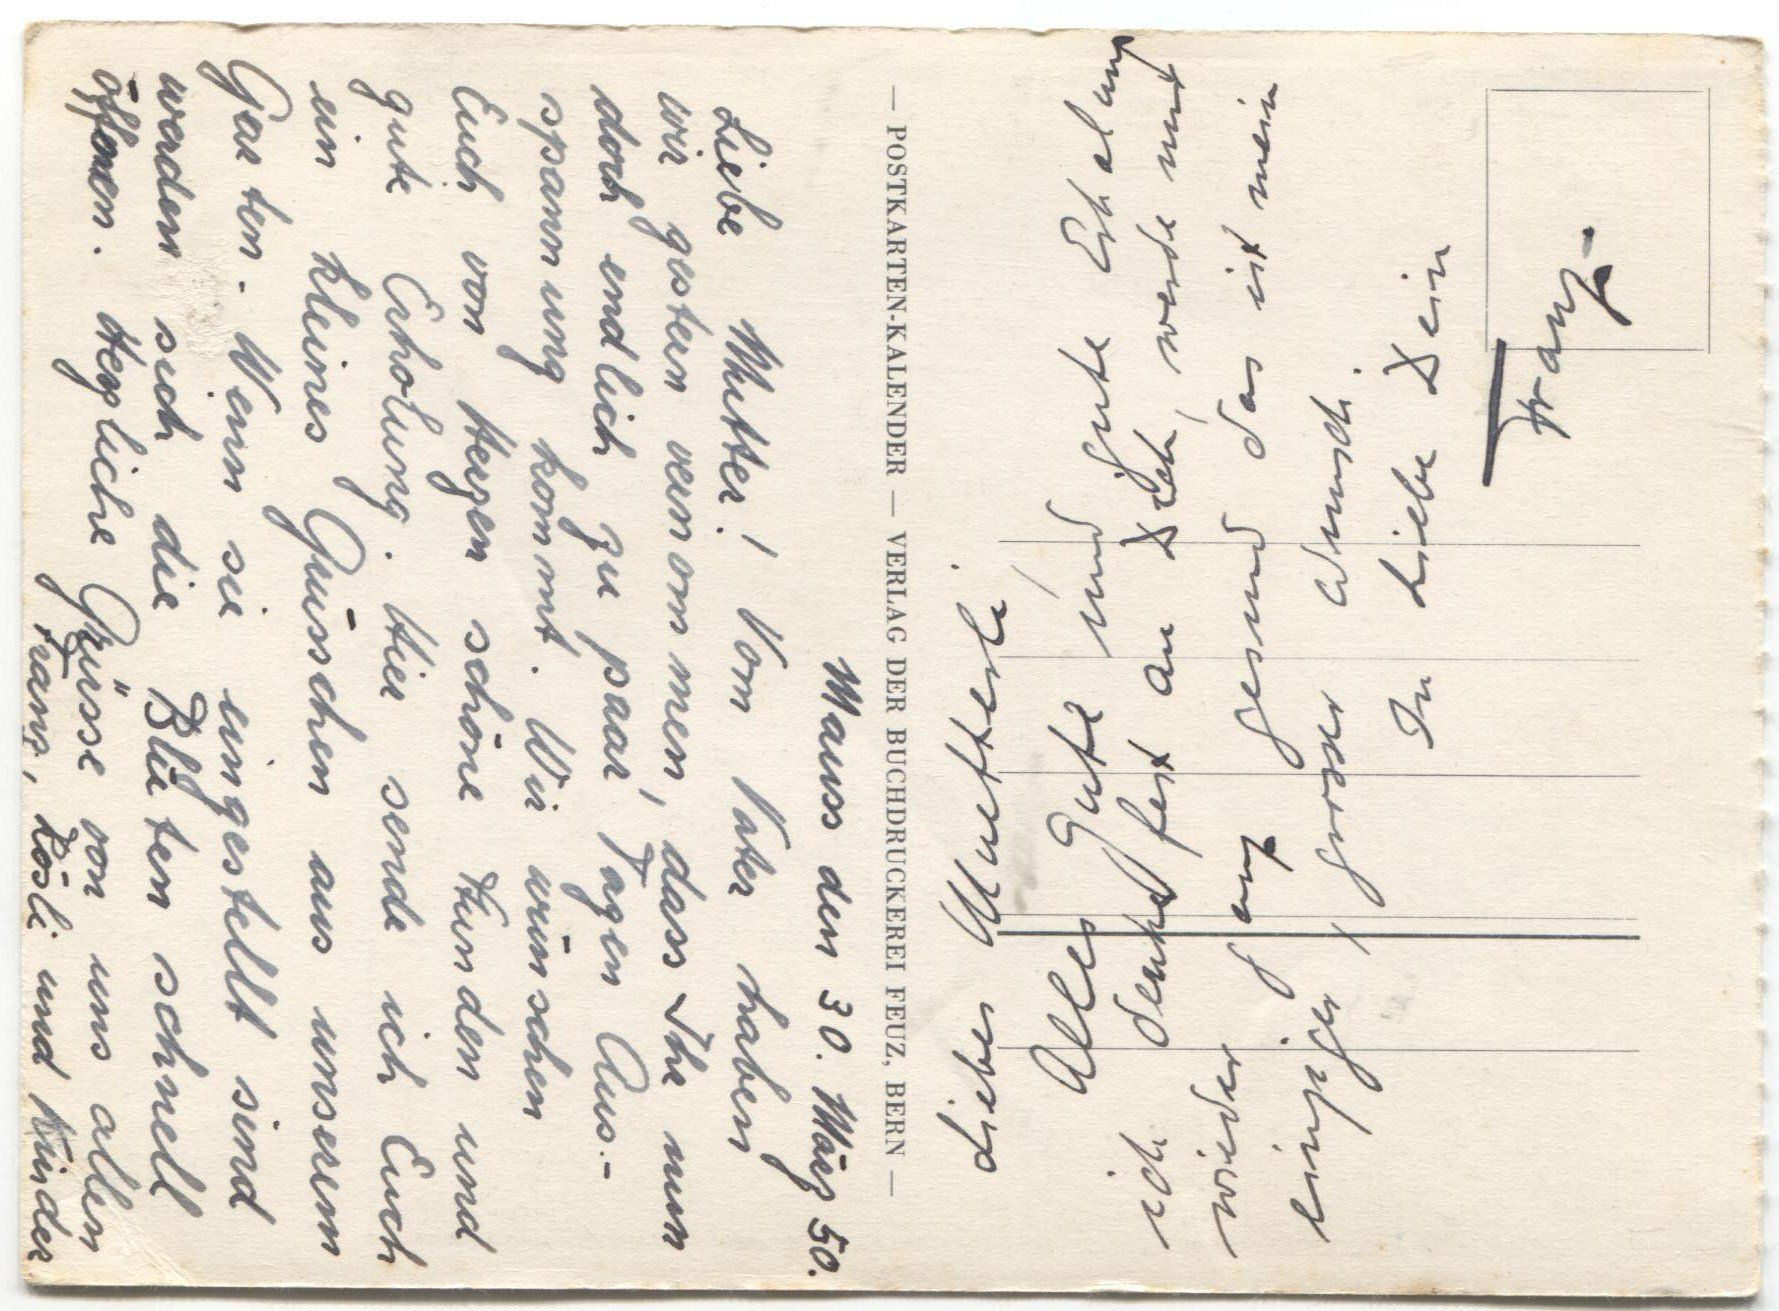 Mauss den 30. März 50.
Liebe Mutter! Vom Vater haben
wir gestern vernommen, dass Ihr nun
doch endlich zu paar Tagen Aus-
spannung kommt. Wir wünschen
Euch von Herzen schöne Stunden und
gute Erholung. Hier sende ich Euch
ein kleines Grüsschen aus unserem
Garten. Wenn sie eingestellt sind
werden sich die Blüten schnell
öffnen. Herzliche Grüsse von uns allen
Franz, Rösli und Kinder
— POSTKARTEN-KALENDER — VERLAG DER BUCHDRUCKEREI FEUZ, BERN —
Liebes Muetterli
Alles Gute und gute Erholung
ich denke fest an Dich, werde nur
wieder ganz gesund das ist mein
einziger, grosser Wunsch.
In Liebe Dein
Franz.